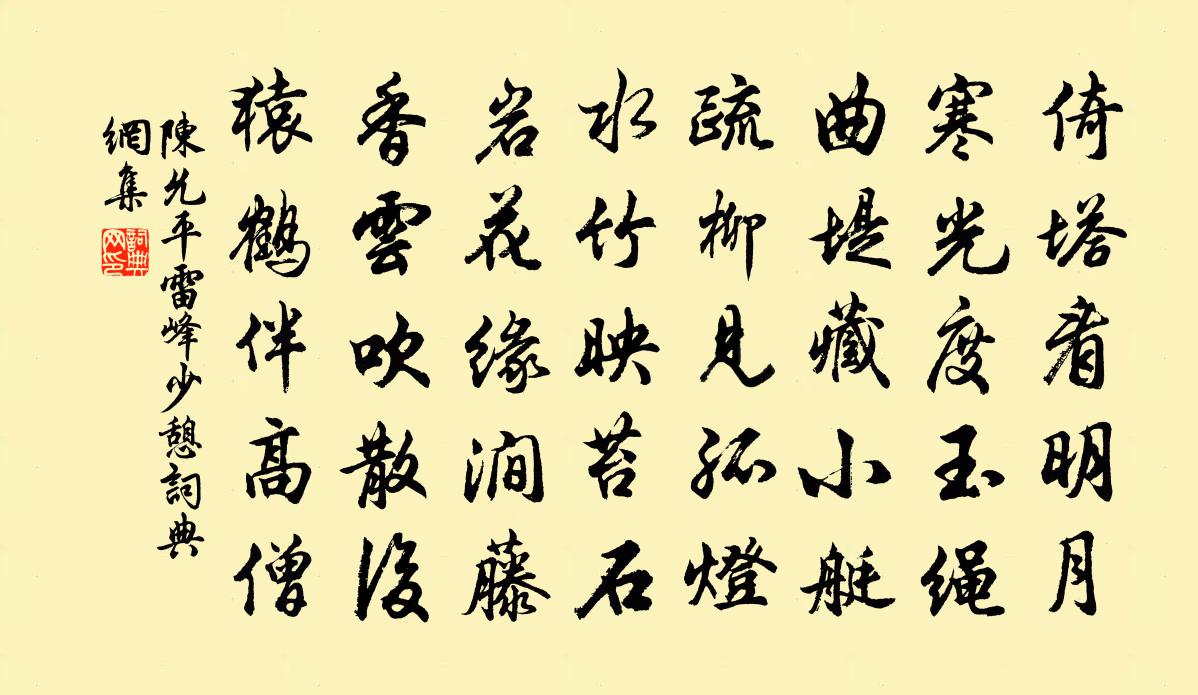 倚塔看明月
寒光度玉绳
曲堤藏小艇
疏柳見孤燈
水竹映苔石
岩花缘澗藤
香雲吹散後
猿鶴伴高僧
陳允平雷峰少憩詞典
網集
詞典
网印